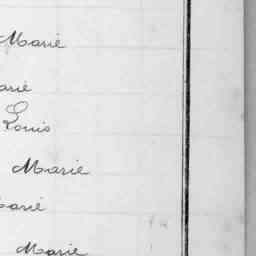 Marie
arie
Louis
Marie
arie
Marie